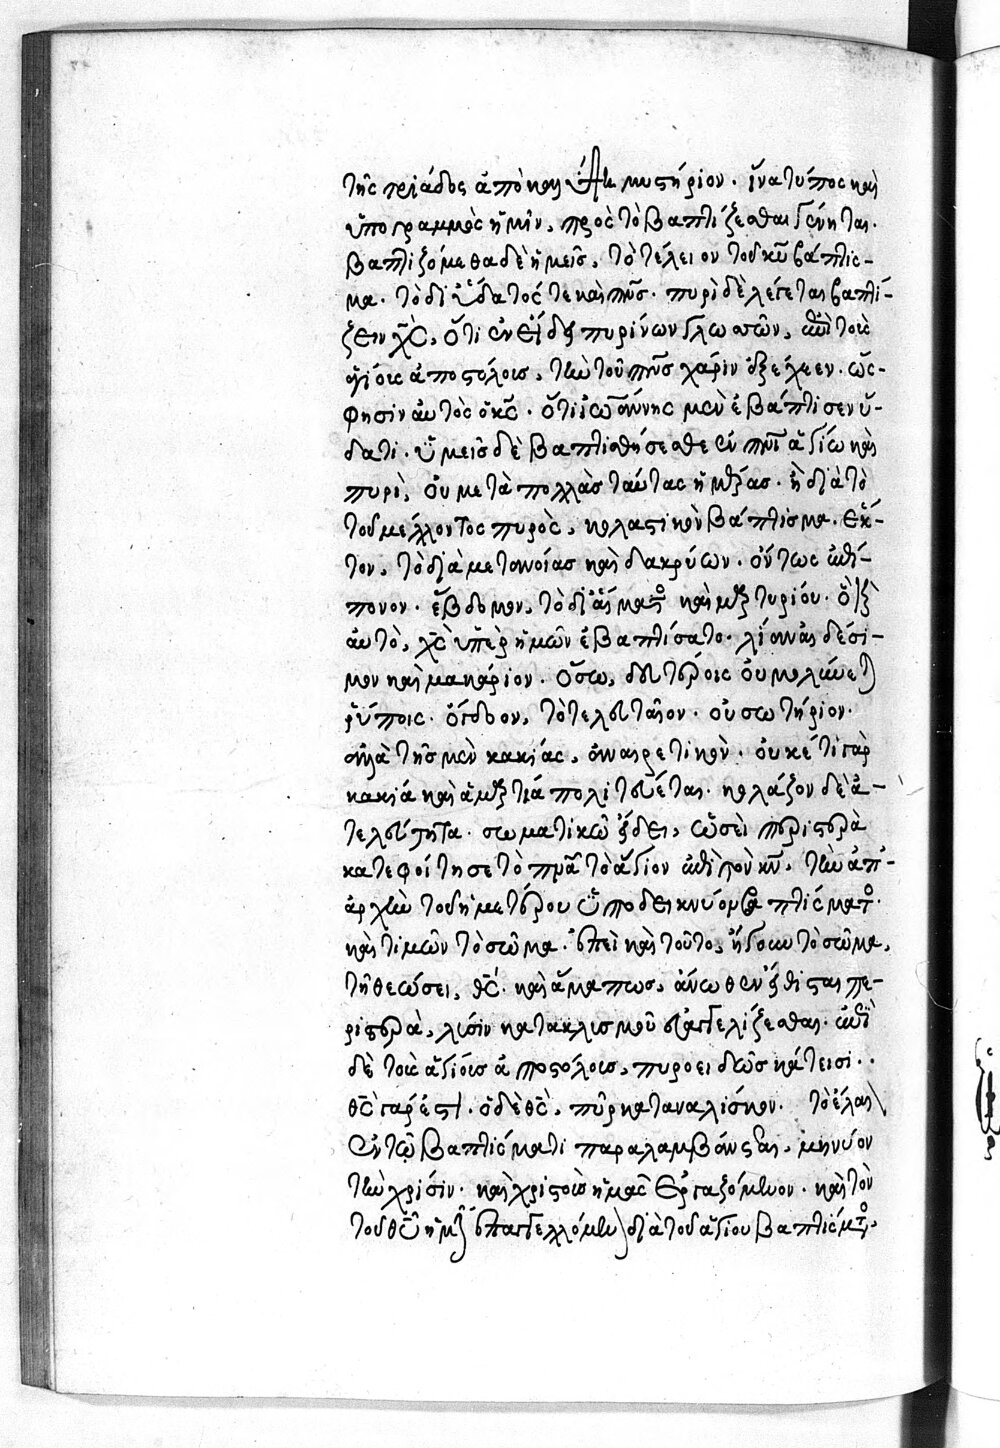 τῆς τριάδος ἀπόκρυφον μυστήριον. ἵνα τύπος καὶ
ὑπογραμμὸς ἡμῖν, πρὸς τὸ βαπτίζεσθαι γένηται.
βαπτιζόμεθα δὲ ἡμεῖς, τὸ τέλειον τοῦ κῡ βάπτισ-
μα. τὸ δι ὕδατός τε καὶ πν̅ς. πυρὶ δὲ λέγεται βαπτί-
ζειν χς̅, ὅτι ἐν εἴδει πυρίνων γλωσσῶν, ἐπὶ τοὺς
ἁγίους ἀποστόλους, τὴν τοῦ πν̅ς χάριν ἐξέχεεν. ὥς
φησιν αὐτὸς ὁ κς̅. ὅτι ἰωάννης μὲν ἐβάπτισεν ὕ-
δατι. ὑμεῖς δὲ βαπτισθήσεσθε ἐν πνι̅ ἁγίω καὶ
πυρὶ, οὐ μετὰ πολλὰς ταύτας ἡμέρας. ἢ διὰ τὸ
τοῦ μέλλοντος πυρὸς, κολαστικὸν βάπτισμα. ἕκ-
τον, τὸ διὰ μετανοίας καὶ δακρύων. ὄντως ἐπί-
πονον. ἕβδομον, τὸ δι αἵματος καὶ μαρτυρίου. ὃ καὶ
αὐτὸ, χς̅ ὑπὲρ ἡμῶν ἐβαπτίσατο. λίαν αἰδέσι-
μον καὶ μακάριον. ὅσω, δευτέροις οὐ μολύνεται
ῥύποις. ὄγδοον, τὸ τελευταῖον. οὐ σωτήριον.
ἀλλὰ τῆς μὲν κακίας, ἀναιρετικὸν. οὐκέτι γὰρ
κακία καὶ ἁμαρτία πολιτεύεται. κολάζον δὲ ἀ-
τελεύτητα. σωματικῶ εἴδει, ὡσεὶ περιστερὰ
κατεφοίτησε τὸ πνα̅ τὸ ἅγιον ἐπὶ τὸν κν̅. τὴν ἀπ-
αρχὴν τοῦ ἡμετέρου ὑποδεικνύον βαπτίσματος.
καὶ τιμῶν τὸ σῶμα. ἐπεὶ καὶ τοῦτο, ἤγουν τὸ σῶμα,
τῆ θεώσει, θς̅. καὶ ἅμα πως, ἄνωθεν εἴθισται πε-
ριστερὰ, λύσιν κατακλυσμοῦ εὐαγγελίζεσθαι. ἐπὶ
δὲ τοὺς ἁγίους ἀποστόλους, πυροειδῶς κάτεισι.
θς̅ γάρ ἐστι. ὁ δὲ θς̅, πῦρ καταναλίσκον. τὸ ἔλαιον
ἐν τῶ βαπτίσματι παραλαμβάνεται, μηνύον
τὴν χρίσιν. καὶ χριστοὺς ἡμᾶς ἐργαζόμενον. καὶ τὸν
τοῦ θῡ ἡμῖν ἐπαγγελλόμενον διὰ τοῦ ἁγίου βαπτίσματος.